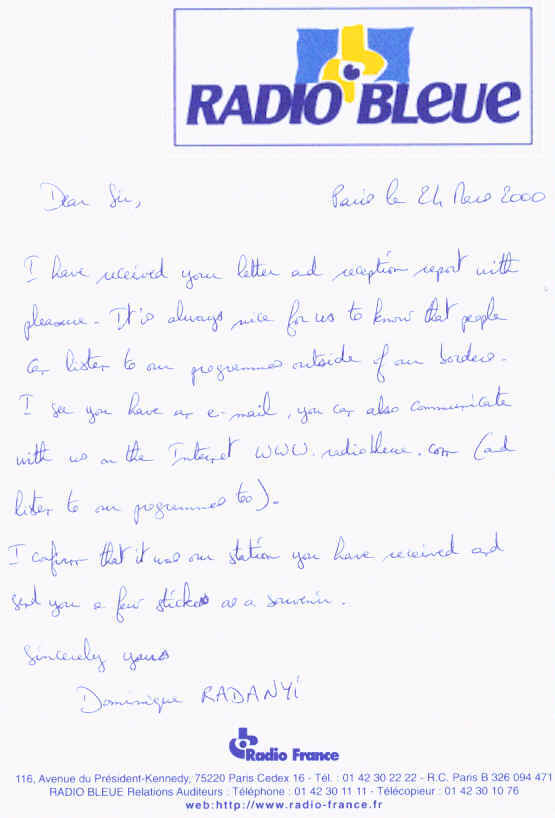 RADIO BLEUE
Dear Sir,
Paris le 24 Mars 2000
I have received your letter and reception report with
pleasure. It is always nice for us to know that people
can listen to our programmes outside of our borders.
I see you have an e-mail, you can also communicate
with us on the Internet WWW.radiobleue.com (and
listen to our programmes too).
I confirm that it was our station you have received and
send you a few stickers as a souvenir.
Sincerely yours
Dominique RADANYI
Radio France
116, Avenue du Président-Kennedy, 75220 Paris Cedex 16 - Tél. : 01 42 30 22 22 - R.C. Paris B 326 094 471
RADIO BLEUE Relations Auditeurs : Téléphone : 01 42 30 11 11 - Télécopieur : 01 42 30 10 76
web:http://www.radio-france.fr